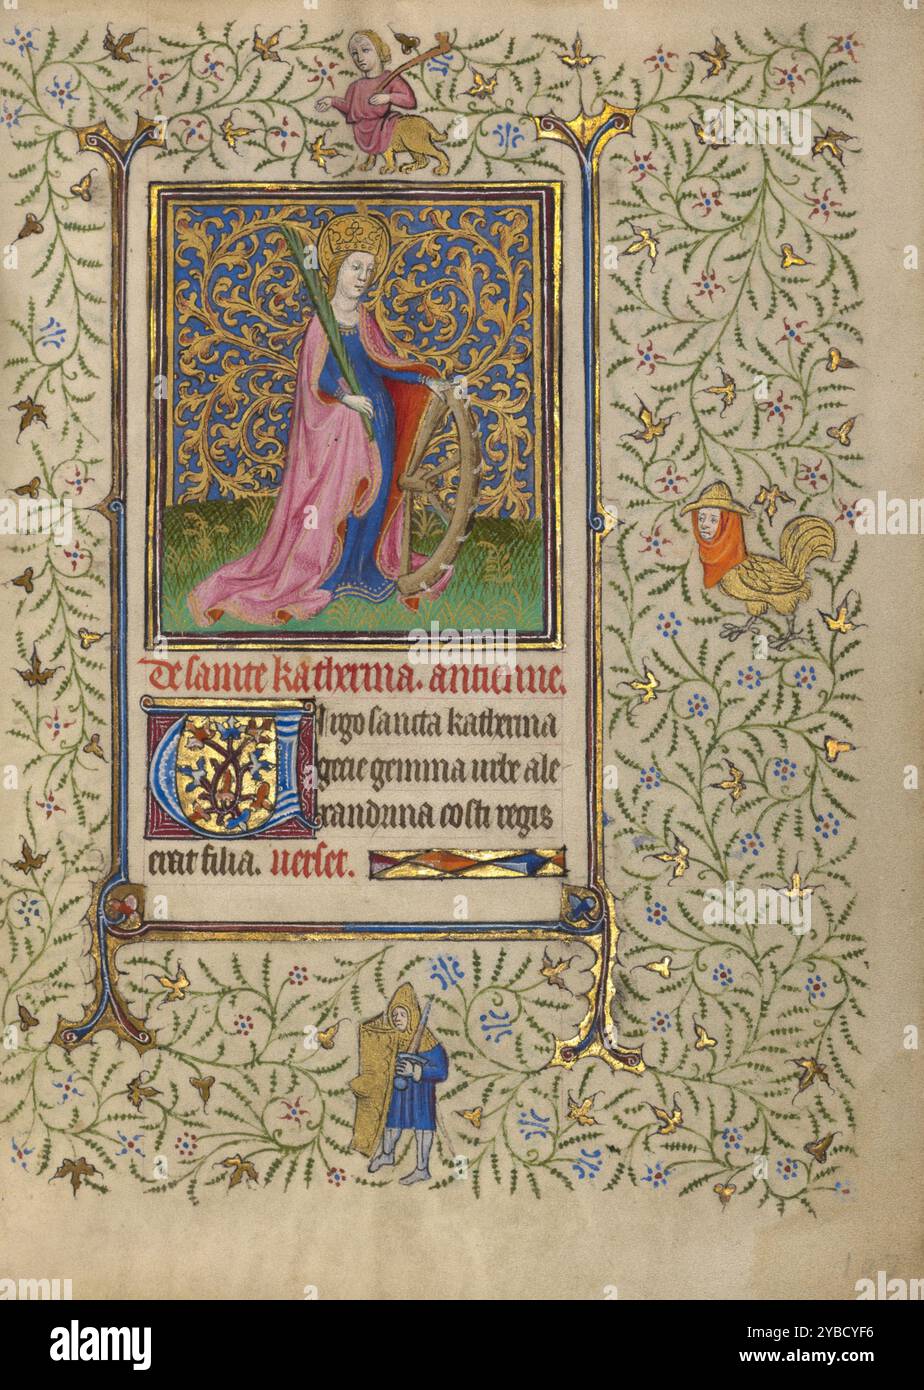 De sainte katherina. antienne.
Uirgo sancta katherina
grecie gemma urbe ale
xandrina costi regis
erat filia. uerset.
alamy
Image ID: 2YBCYF6
www.alamy.com